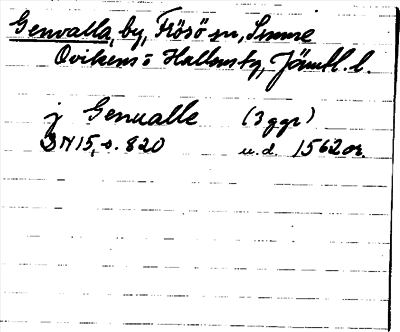 Genvalla, by, Frösö sn, Sunne
Ovikens o Hallens tg, Jämtl. l.
j Genualle (3 ggr)
DN 15, s. 820 u.d. 1562 or.